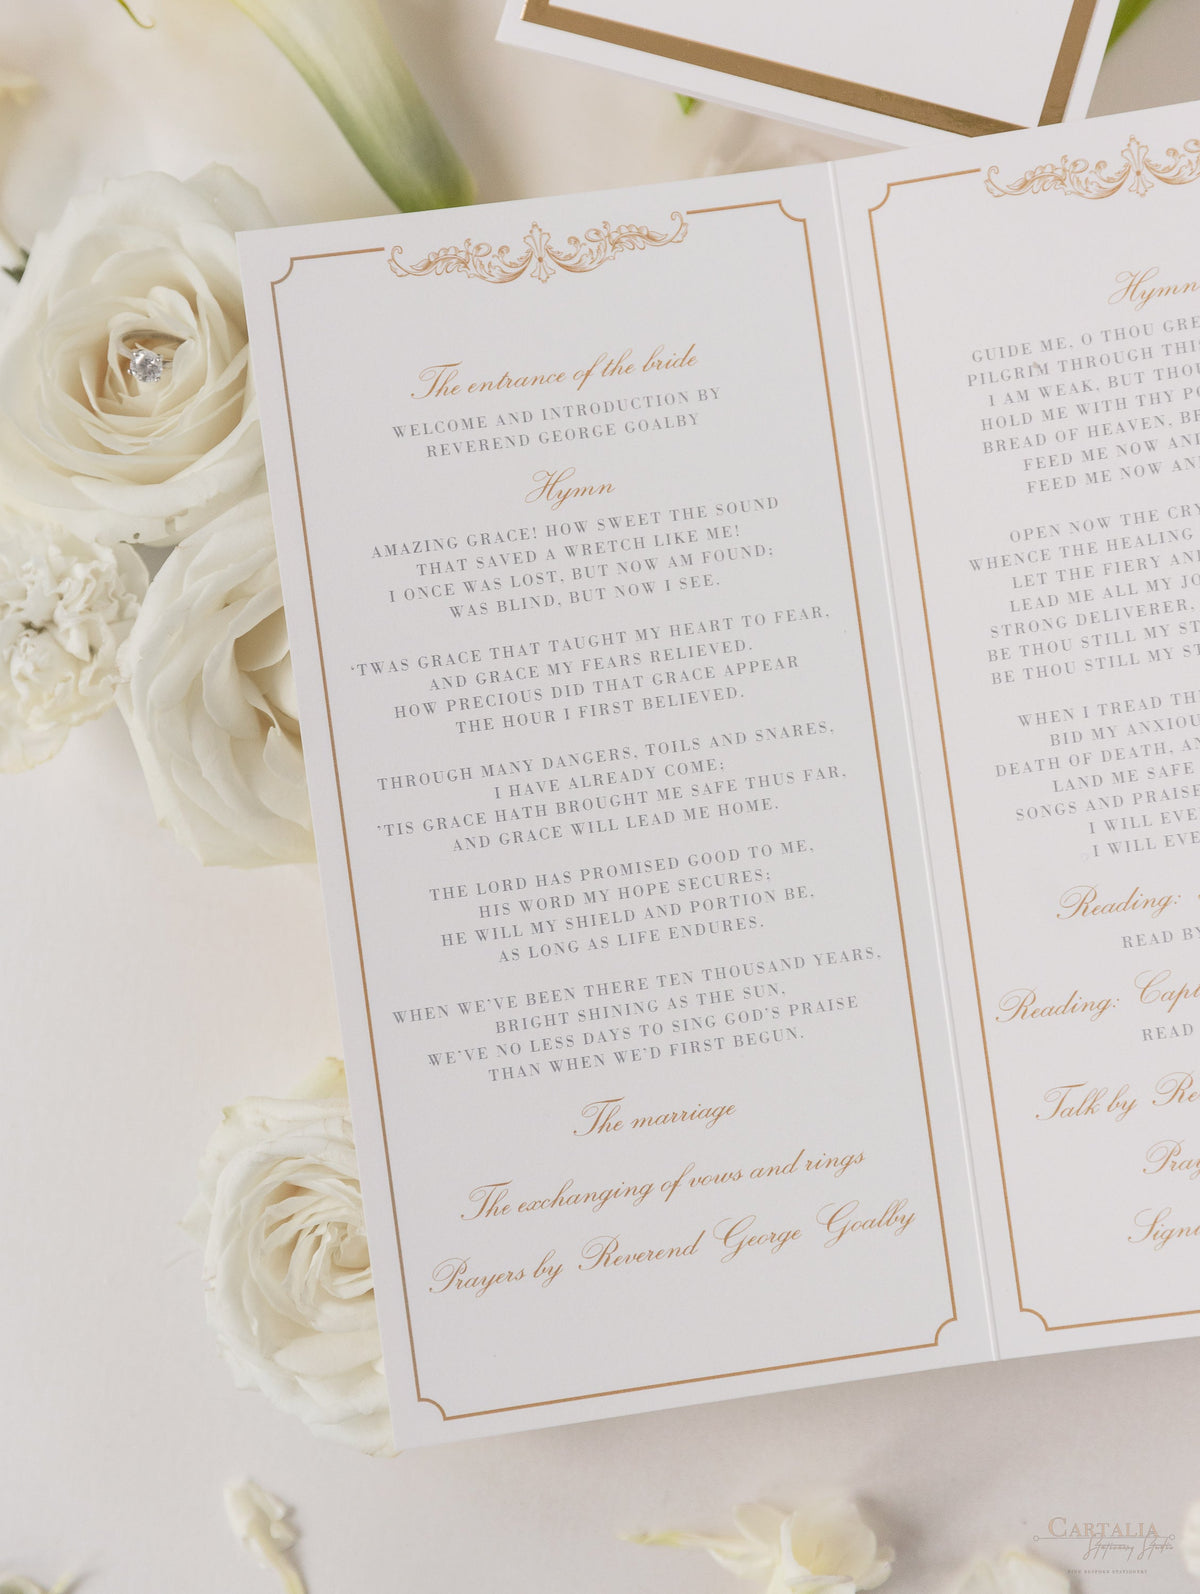 The entrance of the bride
WELCOME AND INTRODUCTION BY
REVEREND GEORGE GOALBY
Hymn
AMAZING GRACE! HOW SWEET THE SOUND
THAT SAVED A WRETCH LIKE ME!
I ONCE WAS LOST, BUT NOW AM FOUND;
WAS BLIND, BUT NOW I SEE.
‘TWAS GRACE THAT TAUGHT MY HEART TO FEAR,
AND GRACE MY FEARS RELIEVED.
HOW PRECIOUS DID THAT GRACE APPEAR
THE HOUR I FIRST BELIEVED.
THROUGH MANY DANGERS, TOILS AND SNARES,
I HAVE ALREADY COME;
’TIS GRACE HATH BROUGHT ME SAFE THUS FAR,
AND GRACE WILL LEAD ME HOME.
THE LORD HAS PROMISED GOOD TO ME,
HIS WORD MY HOPE SECURES;
HE WILL MY SHIELD AND PORTION BE,
AS LONG AS LIFE ENDURES.
WHEN WE’VE BEEN THERE TEN THOUSAND YEARS,
BRIGHT SHINING AS THE SUN,
WE’VE NO LESS DAYS TO SING GOD’S PRAISE
THAN WHEN WE’D FIRST BEGUN.
The marriage
The exchanging of vows and rings
Prayers by Reverend George Goalby
Hymn
GUIDE ME, O THOU GRE
PILGRIM THROUGH THIS
I AM WEAK, BUT THOU
HOLD ME WITH THY PO
BREAD OF HEAVEN, BR
FEED ME NOW AND
FEED ME NOW AN
OPEN NOW THE CRY
WHENCE THE HEALING
LET THE FIERY AN
LEAD ME ALL MY JO
STRONG DELIVERER,
BE THOU STILL MY ST
BE THOU STILL MY ST
WHEN I TREAD TH
BID MY ANXIOU
DEATH OF DEATH, AN
LAND ME SAFE
SONGS AND PRAISE
I WILL EVE
I WILL EVE
Reading:
READ BY
Reading: Capt
READ
Talk by Re
Pray
Signi
CARTALIA
Stationery Studio
FINE BESPOKE STATIONERY